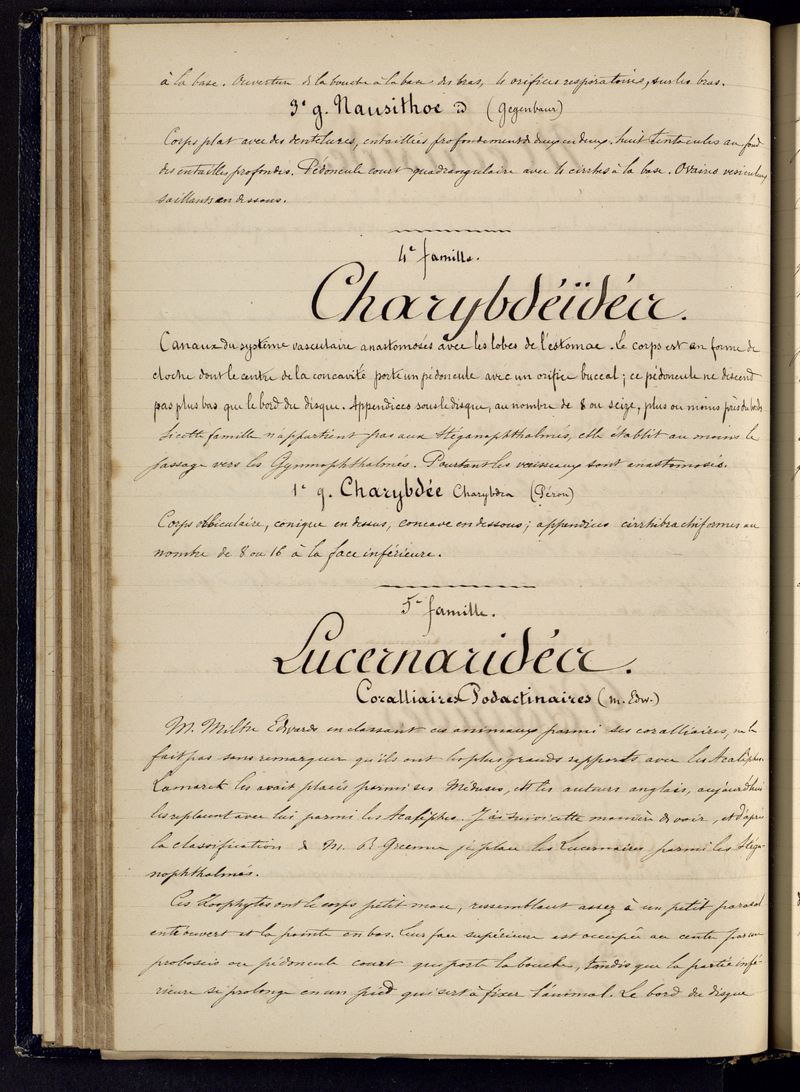 à la base. Ouverture de la bouche à la base des bras, 4 orifices respiratoires, sur les bras.
3e g. Nausithoe (Gegenbaur)
Corps plat avec des dentelures, entaillées profondement de deux en deux. huit tentacules au fond
des entailles profondes. Pédoncule court quadrangulaire avec 4 cirrhes à la base. Ovaires vesiculeux
saillants en dessous.
4e famille.
Charybdéïdéæ.
Canaux du système vasculaire anastomosés avec les lobes de l'estomac. Le corps est en forme de
cloche dont le centre de la concavité porte un pédoncule avec un orifice buccal; ce pédoncule ne descend
pas plus bas que le bord du disque. Appendices sous le disque, au nombre de 8 ou seize, plus ou moins près du bords
Si cette famille n'appartient pas aux Stéganophthalmés, elle établit au moins le
passage vers les Gymnophthalmés. Pourtant les vaisseaux sont anastomosés.
1e g. Charybdée Charybdea (Péron)
Corps orbiculaire, conique en dessus, concave en dessous; appendices cirrhibrachiformes au
nombre de 8 ou 16 à la face inférieure.
5e famille.
Lucernaridéæ.
Coralliaires Podactinaires (M. Edw.)
M. Milne Edwards en classant ces animaux parmi ses coralliaires, ne le
fait pas sans remarquer qu'ils ont les plus grands rapports avec les Acalèphes.
Lamarck les avait placés parmi ses Méduses, et les auteurs anglais, aujourd'hui
les replacent avec lui parmi les Acalèphes. J'ai suivi cette manière de voir, et d'après
la classification de M. R. Greene je place les Lucernaires parmi les Stéga-
nophthalmés.
Ces Zoophytes ont le corps petit mou, ressemblant assez à un petit parasol
entr'ouvert et la pointe en bas. Leur face supérieure est occupée au centre par un
proboscis ou pédoncule court qui porte la bouche, tandis que la partie infé-
rieure se prolonge en un pied qui sert à fixer l'animal. Le bord du disque